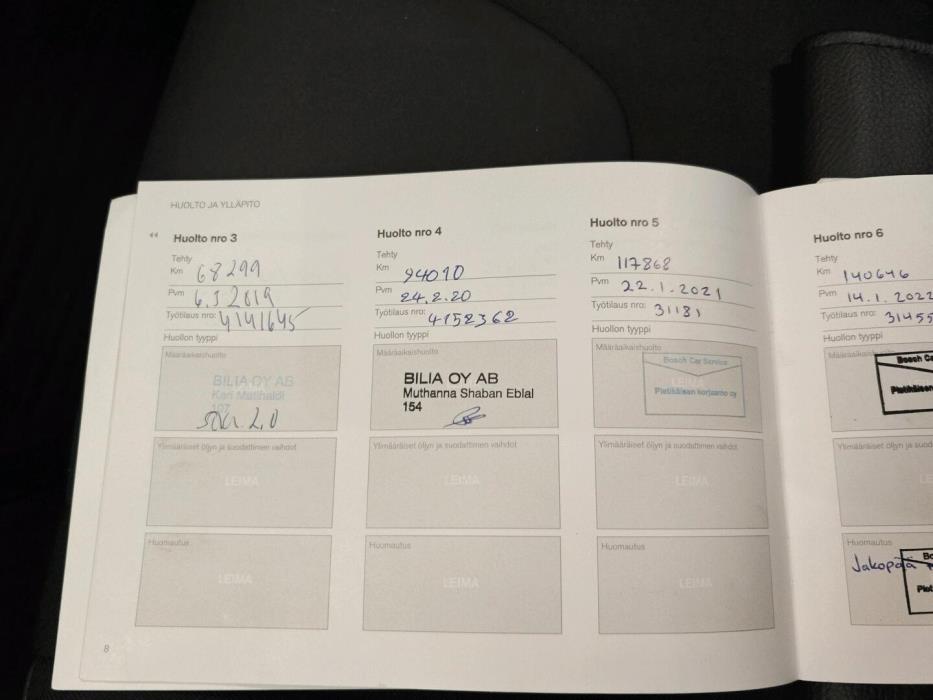 HUOLTO JA YLLÄPITO
Huolto nro 3
Tehty
Km 68299
Pvm 6.3 2019
Työtilaus nro: 4141645
Huollon tyyppi
Määräaikaishuolto
BILIA OY AB
Kari
107
Ylimääräiset öljyn ja suodattimen vaihdot
LEIMA
Huomautus
LEIMA
8
Huolto nro 4
Tehty
Km 94010
Pvm 24.2.20
Työtilaus nro: 4152362
Huollon tyyppi
Määräaikaishuolto
BILIA OY AB
Muthanna Shaban Eblal
154
Ylimääräiset öljyn ja suodattimen vaihdot
LEIMA
Huomautus
LEIMA
Huolto nro 5
Tehty
Km 117868
Pvm 22.1.2021
Työtilaus nro: 31181
Huollon tyyppi
Määräaikaishuolto
LEIMA
Bosch Car Service
Pietikäisen korjaamo oy
Ylimääräiset öljyn ja suodattimen vaihdot
LEIMA
Huomautus
LEIMA
Huolto nro 6
Tehty
Km 140646
Pvm 14.1.2022
Työtilaus nro: 31455
Huollon tyyppi
Bosch Ca
Pietikäisen
Ylimääräiset öljyn ja suod
LE
Huomautus
Jakopää
Bo
Piet